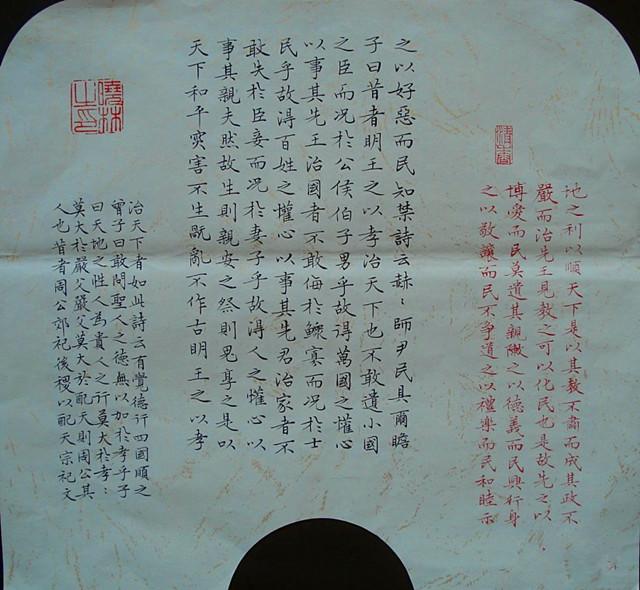 地之利以順天下是以其教不肅而成其政不
嚴而治先王見教之可以化民也是故先之以
博愛而民莫遺其親敶之以德義而民興行身
之以敬讓而民不爭道之以禮樂而民和睦示
之以好惡而民知禁詩云赫〻師尹民具爾瞻
子曰昔者明王之以孝治天下也不敢遺小國
之臣而况於公侯伯子男乎故得萬國之懽心
以事其先王治國者不敢侮於鰥寡而况於士
民乎故得百姓之懽心以事其先君治家者不
敢失於臣妾而况於妻子乎故得人之懽心以
事其親夫然故生則親安之祭則鬼享之是以
天下和平災害不生旤亂不作古明王之以孝
治天下者如此詩云有覺德行四國順之
曾子曰敢問聖人之德無以加於孝乎子
曰天地之性人為貴人之行莫大於孝〻
莫大於嚴父嚴父莫大於配天則周公其
人也昔者周公郊祀後稷以配天宗祀文
曉林之印